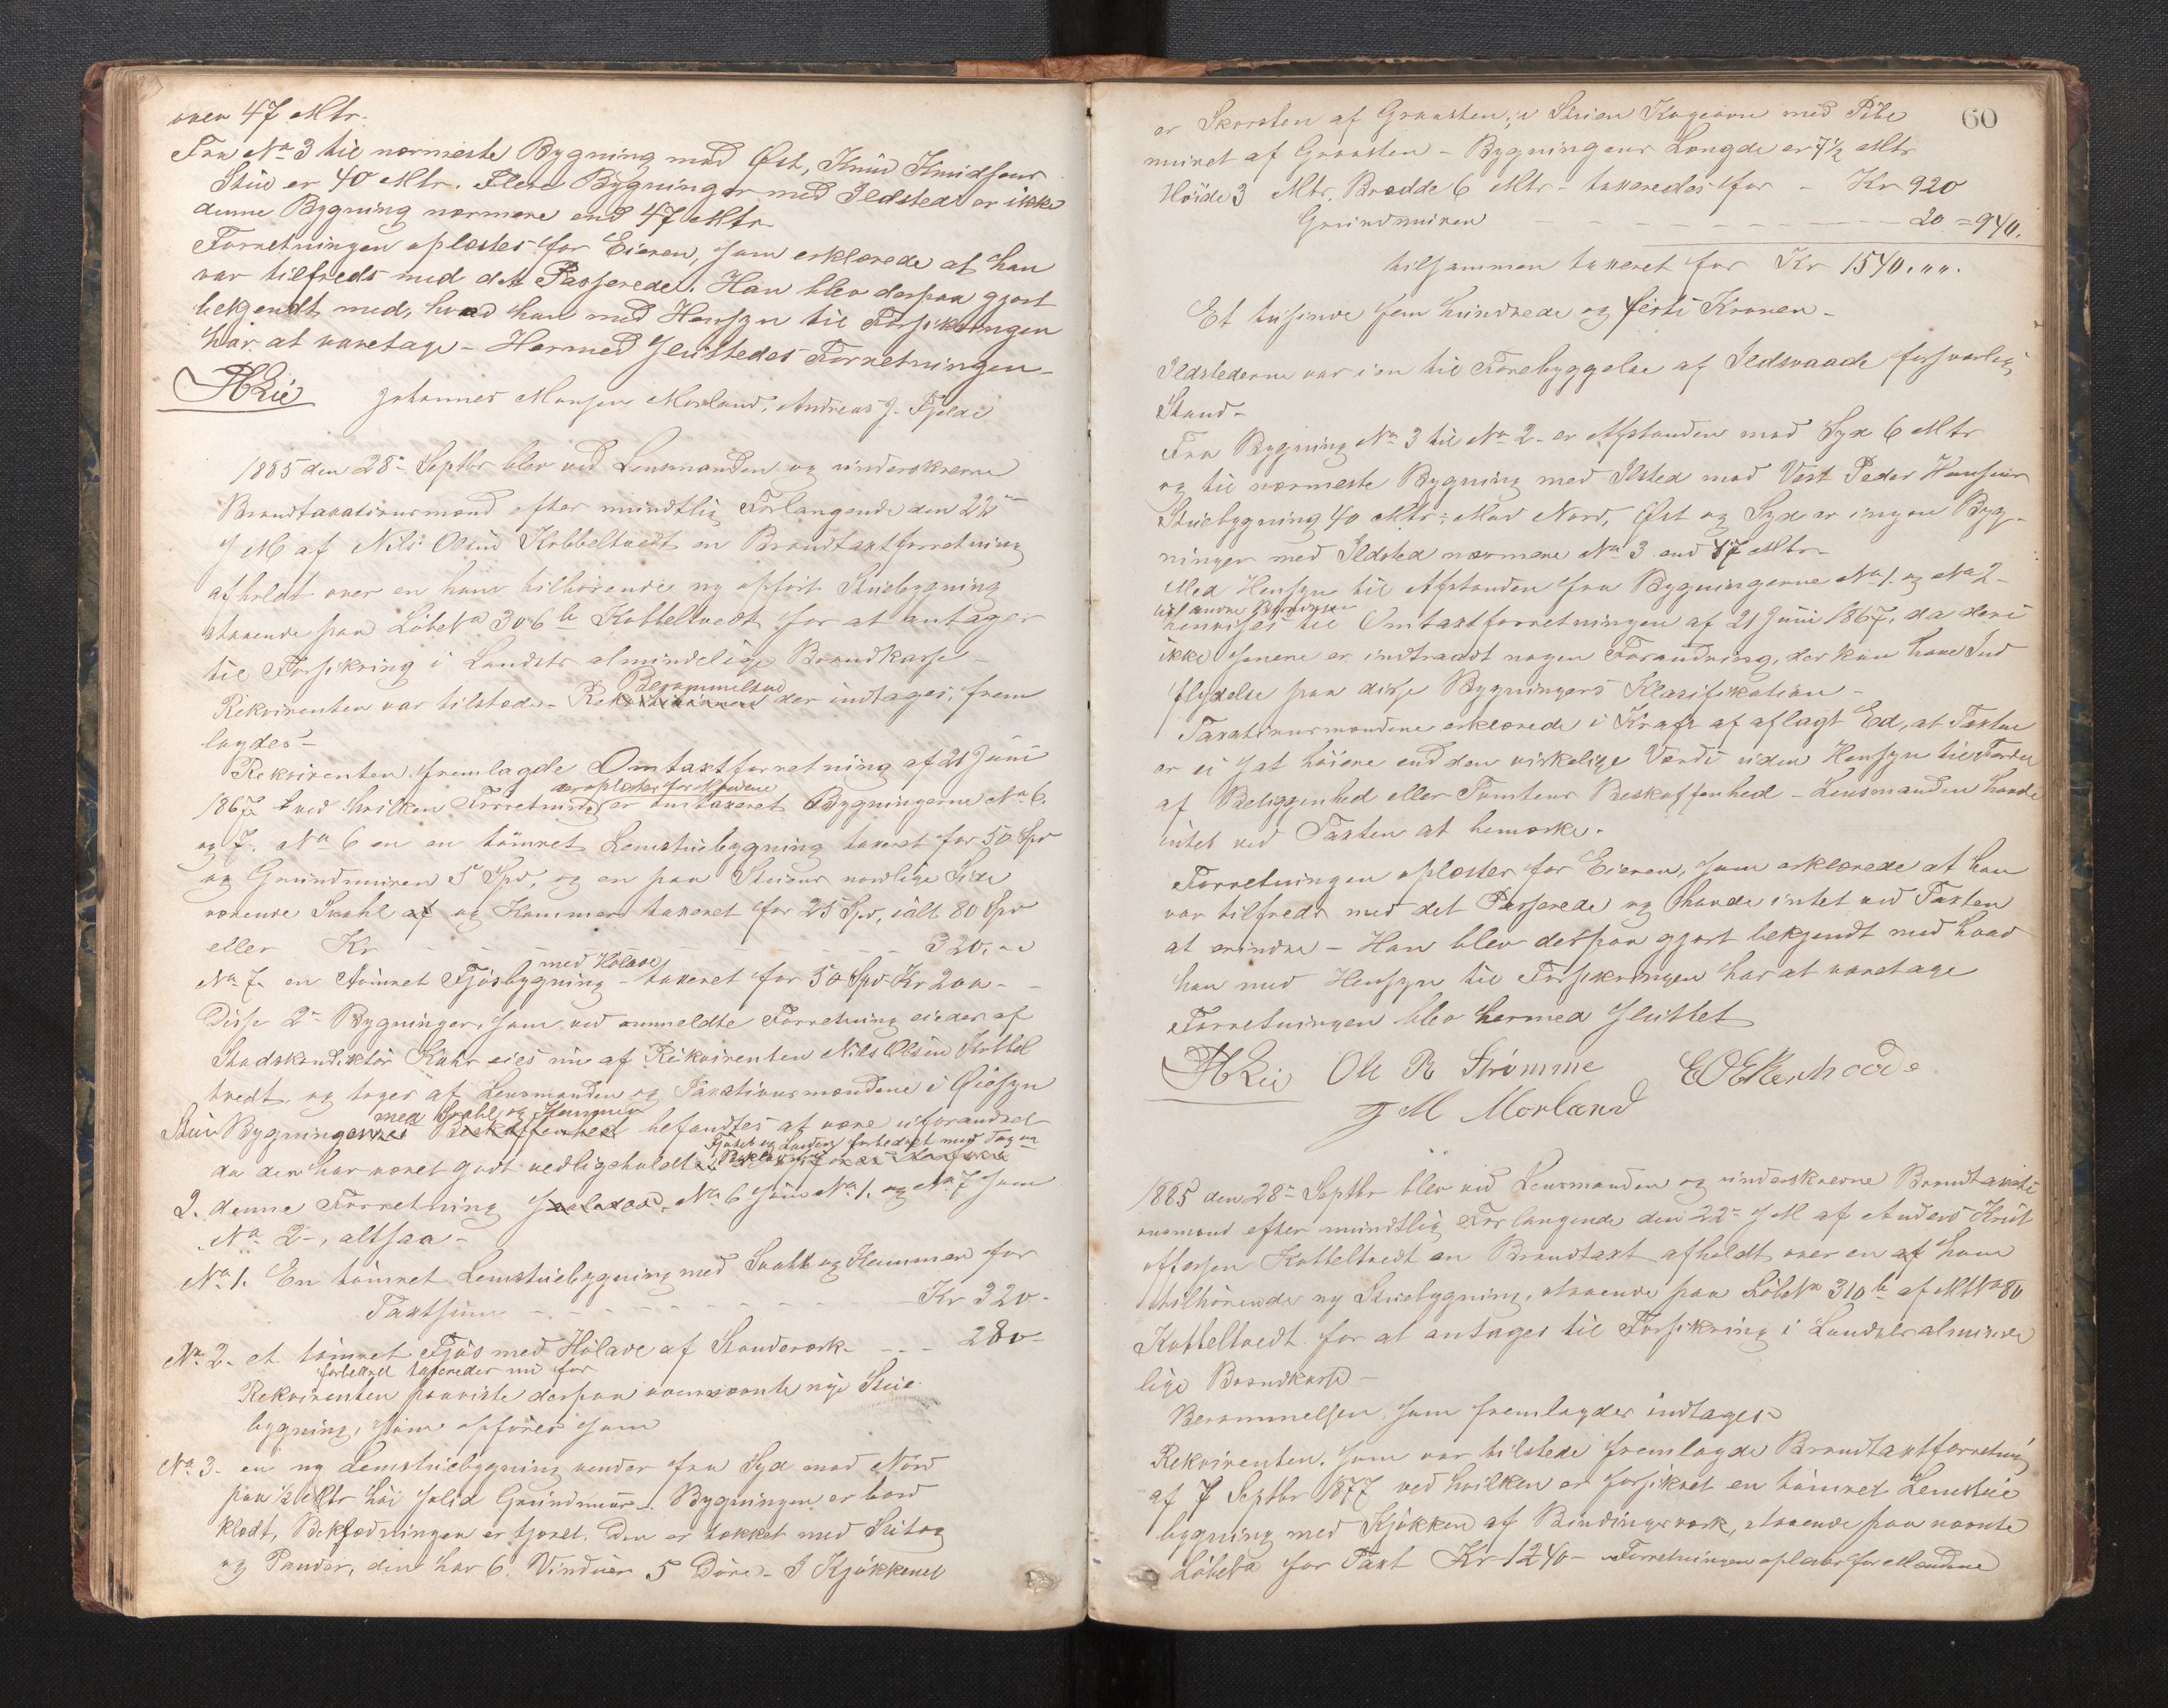 over 47 Mtr.
Fra No 3 til nærmeste Bygning mod Øst, Knud Knudsens
Stue er 40 Mtr. Flere Bygninger med Ildsted er ikke
denne Bygning nærmere end 47 Mtr
Forretningen oplæstes for Eieren, som erklærede at han
var tilfreds med det Passerede. Han blev derpaa gjort
bekjendt med, hvad han med Hensyn til Forsikringen
har at varetage - Hermed sluttedes Forretningen -
Johannes Monsen Morland, Andreas J. Fjelde
1885 den 28de Septbr blev ved Lensmanden og underskrevne
Brandtaxationsmænd efter mundtlig Forlangende den 22de
s M af Nils Olsen Kobbeltvedt en Brandtaxtforretning
afholdt over en ham tilhørende ny opført Stuebygning
staaende paa Løbe No 306 b Kobbeltvedt for at antages
til Forsikring i Landets almindelige Brandkasse -
Berammelsen
Rekvirenten var tilstede - der indtages, frem
lagdes -
Rekvirenten fremlagde Omtaxtforretning af 21 Juni
der oplæstes for Mændene
1867 ved hvilken Forretning er omtaxeret Bygningerne No 6.
og 7. No 6 en en tømret Lemstuebygning taxeret for 50 Spd
og Grundmuren 5 Spd, og en paa Stuens nordlige Side
værende Svahl af og Kammer taxeret for 25 Spd, ialt 80 Spd
eller Kr - - - - - - 320. -
med Hølade
No 7. en tømret Fjøsbygning - taxeret for 50 Spd Kr 200 - -
Disse 2de Bygninger, som ved anmeldte Forretning eiedes af
Stadskonduktør Kahrs eies nu af Rekvirenten Nils Olsen Kobbel
tvedt, og toges af Lensmanden og Taxationsmændene i Øiesyn
med Svahl og Kammer
Stue Bygningernes Beskaffenhed befandtes at være uforandret
Fjøset og Laden forbedret med Tag og
da den har været godt vedligeholdt
2. denne Forretning No 6 som No 1. og No 7 som
No 2 -, altsaa -
No 1. En tømret Lemstuebygning med Svahl og Kammer for
Taxtsum - - - - - - Kr 320 -
No 2. et tømret Fjøs med Hølade af Stavderværk - - - 280 -
forbedret taxeredes nu for
Rekvirenten paaviste derpaa ovennævnte nye Stue
bygning, som opføres som
No 3. en ny Lemstuebygning vender fra Syd mod Nord
paa 1/2 Mtr høi solid Grundmur. Bygningen er bord
klædt, Beklædningen er tjæret. Den er tækket med Sutag
og Pander, den har 6 Vinduer 5 Døre - I Kjøkkenet
60
er Skorsten af Graasten, i Stuen Kogeovn med Pibe
muret af Graasten - Bygningens Længde er 7 1/2 Mtr
Høide 3 Mtr. Bredde 6 Mtr - taxeredes for - Kr 920
Grundmuren - - - - - - 20 = 940.
tilsammen taxeret for Kr 1540. " ".
Et tusinde fem hundrede og førti Kroner -
Ildstederne var i en til Forebyggelse af Ildsvaade forsvarlig
Stand -
Fra Bygning No 3 til No 2 - er Afstanden mod Syd 6 Mtr
og til nærmeste Bygning med Ilsted mod Vest Peder Hansens
Stuebygning 40 Mtr. Mod Nord, Øst og Syd er ingen Byg-
ninger med Ildsted nærmere No 3 end 47 Mtr -
Med Hensyn til Afstanden fra Bygningerne No 1. og No 2 -
til andre Bygninger
henvises til Omtaxtforretningen af 21 Juni 1867, da deri
ikke senere er indtraadt nogen Forandring, der kan have Ind
flydelse paa disse Bygningers Klasifikation -
Taxationsmændene erklærede i Kraft af aflagt Ed, at Taxten
er ei sat høiere end den virkelige Værdi uden Hensyn til Fordel
af Beliggenhed eller Tomtens Beskaffenhed - Lensmanden havde
intet ved Taxten at bemærke.
Forretningen oplæstes for Eieren, som erklærede at han
var tilfreds med det Passerede og havde intet ved Taxten
at erindre - Han blev derpaa gjort bekjendt med hvad
han med Hensyn til Forsikringen har at varetage
Forretningen blev hermed sluttet
Ole R Strømme
J M Morland
1885 den 28de Septbr blev ved Lensmanden og underskrevne Brandtaxati
onsmænd efter mundtlig Forlangende den 22de s M af Anders Krist
offersen Kobbeltvedt en Brandtaxt afholdt over en af ham
tilhørende ny Stuebygning, staaende paa Løbe No 310 b af Mt No 80
Kobbeltvedt for at antages til Forsikring i Landets alminde
lige Brandkasse -
Berammelsen som fremlagdes indtages
Rekvirenten, som var tilstede fremlagde Brandtaxtforretning
af 7 Septbr 1877 ved hvilken er forsikret en tømret Lemstue
bygning med Kjøkken af Bindingsverk, staaende paa nævnte
Løbe No for Taxt Kr 1240 - Forretningen oplæstes for Mændene